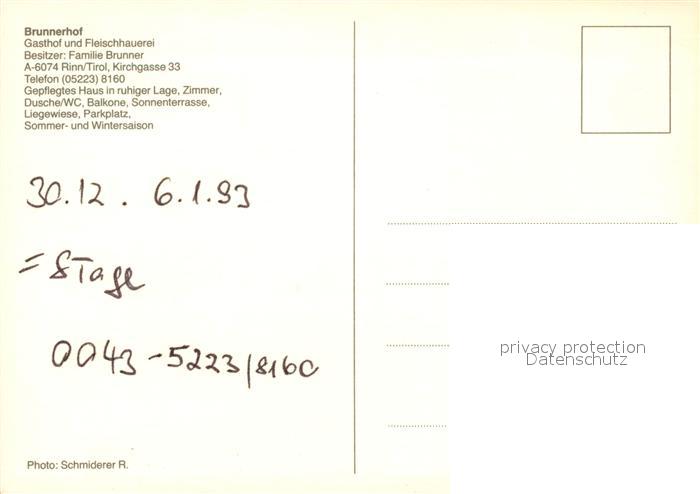 Brunnerhof
Gasthof und Fleischhauerei
Besitzer: Familie Brunner
A-6074 Rinn/Tirol, Kirchgasse 33
Telefon (05223) 8160
Gepflegtes Haus in ruhiger Lage, Zimmer,
Dusche/WC, Balkone, Sonnenterrasse,
Liegewiese, Parkplatz,
Sommer- und Wintersaison
30.12. 6.1.93
= 8 Tage
0043-5223/8160
Photo: Schmiderer R.
privacy protection
Datenschutz